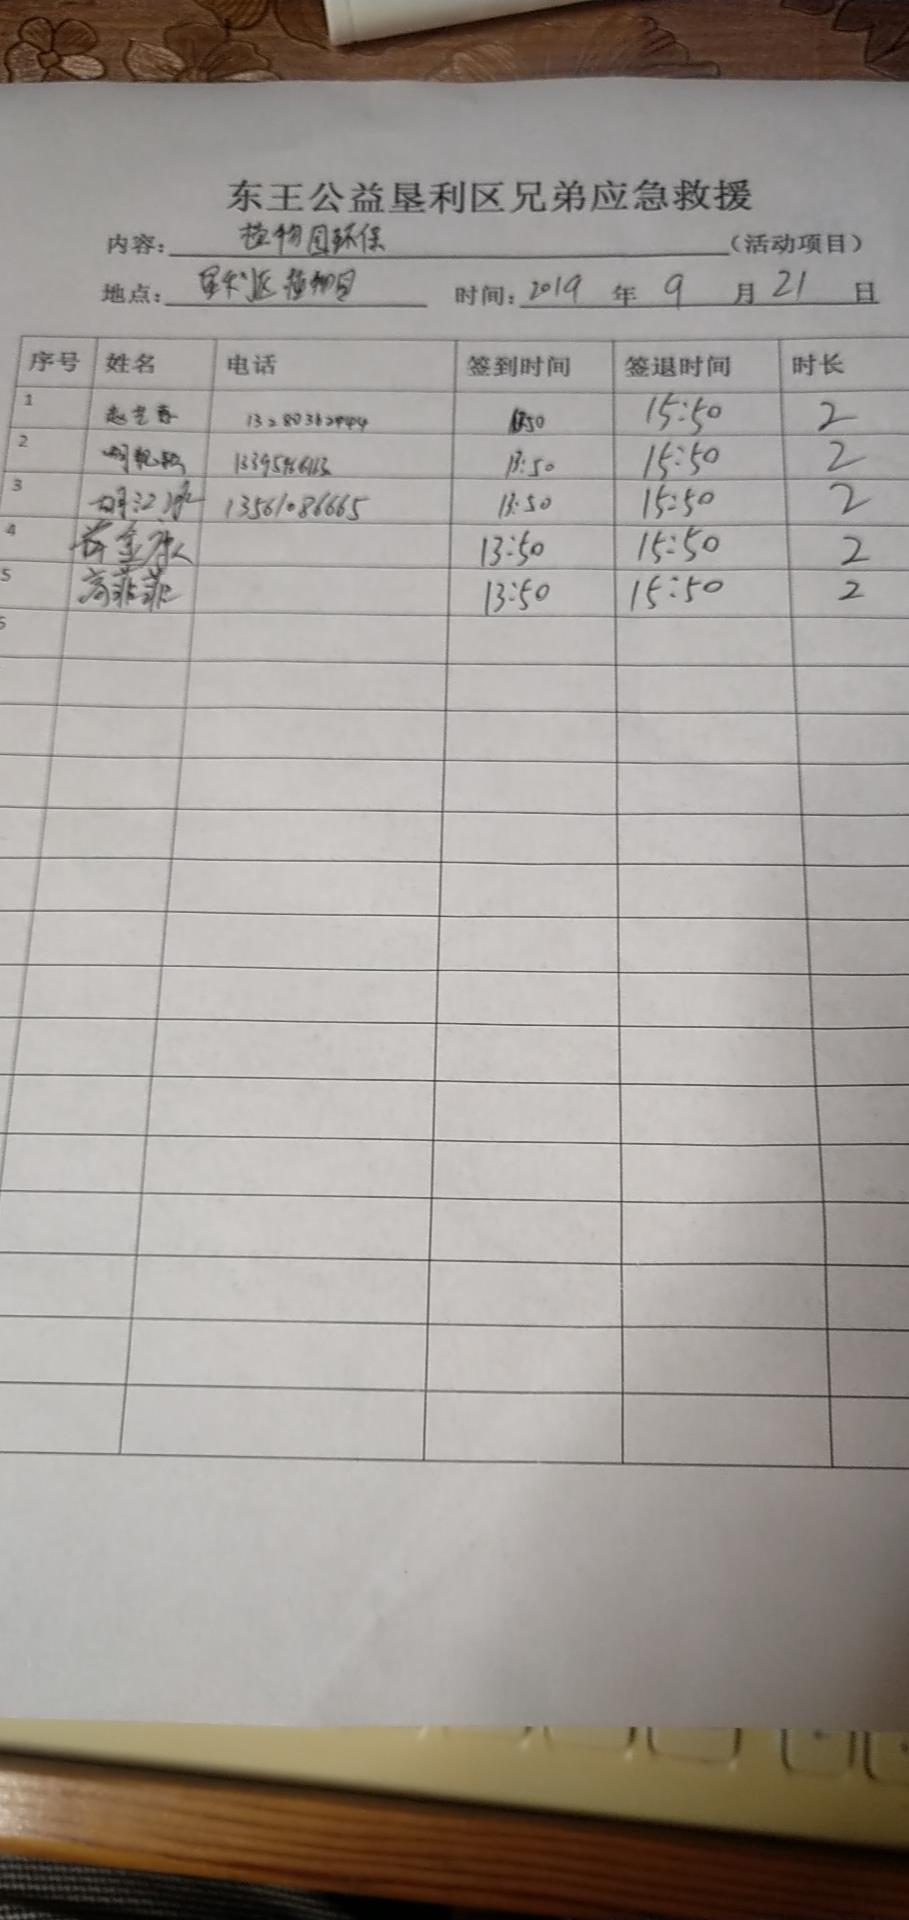 东王公益垦利区兄弟应急救援
内容: 植物园环保 (活动项目)
地点: 垦利区植物园 时间: 2019 年 9 月 21 日
序号 姓名 电话 签到时间 签退时间 时长
1 13280362944 13:50 15:50 2
2 13:50 15:50 2
3 胡江波 13561086665 13:50 15:50 2
4 13:50 15:50 2
5 高菲菲 13:50 15:50 2
6